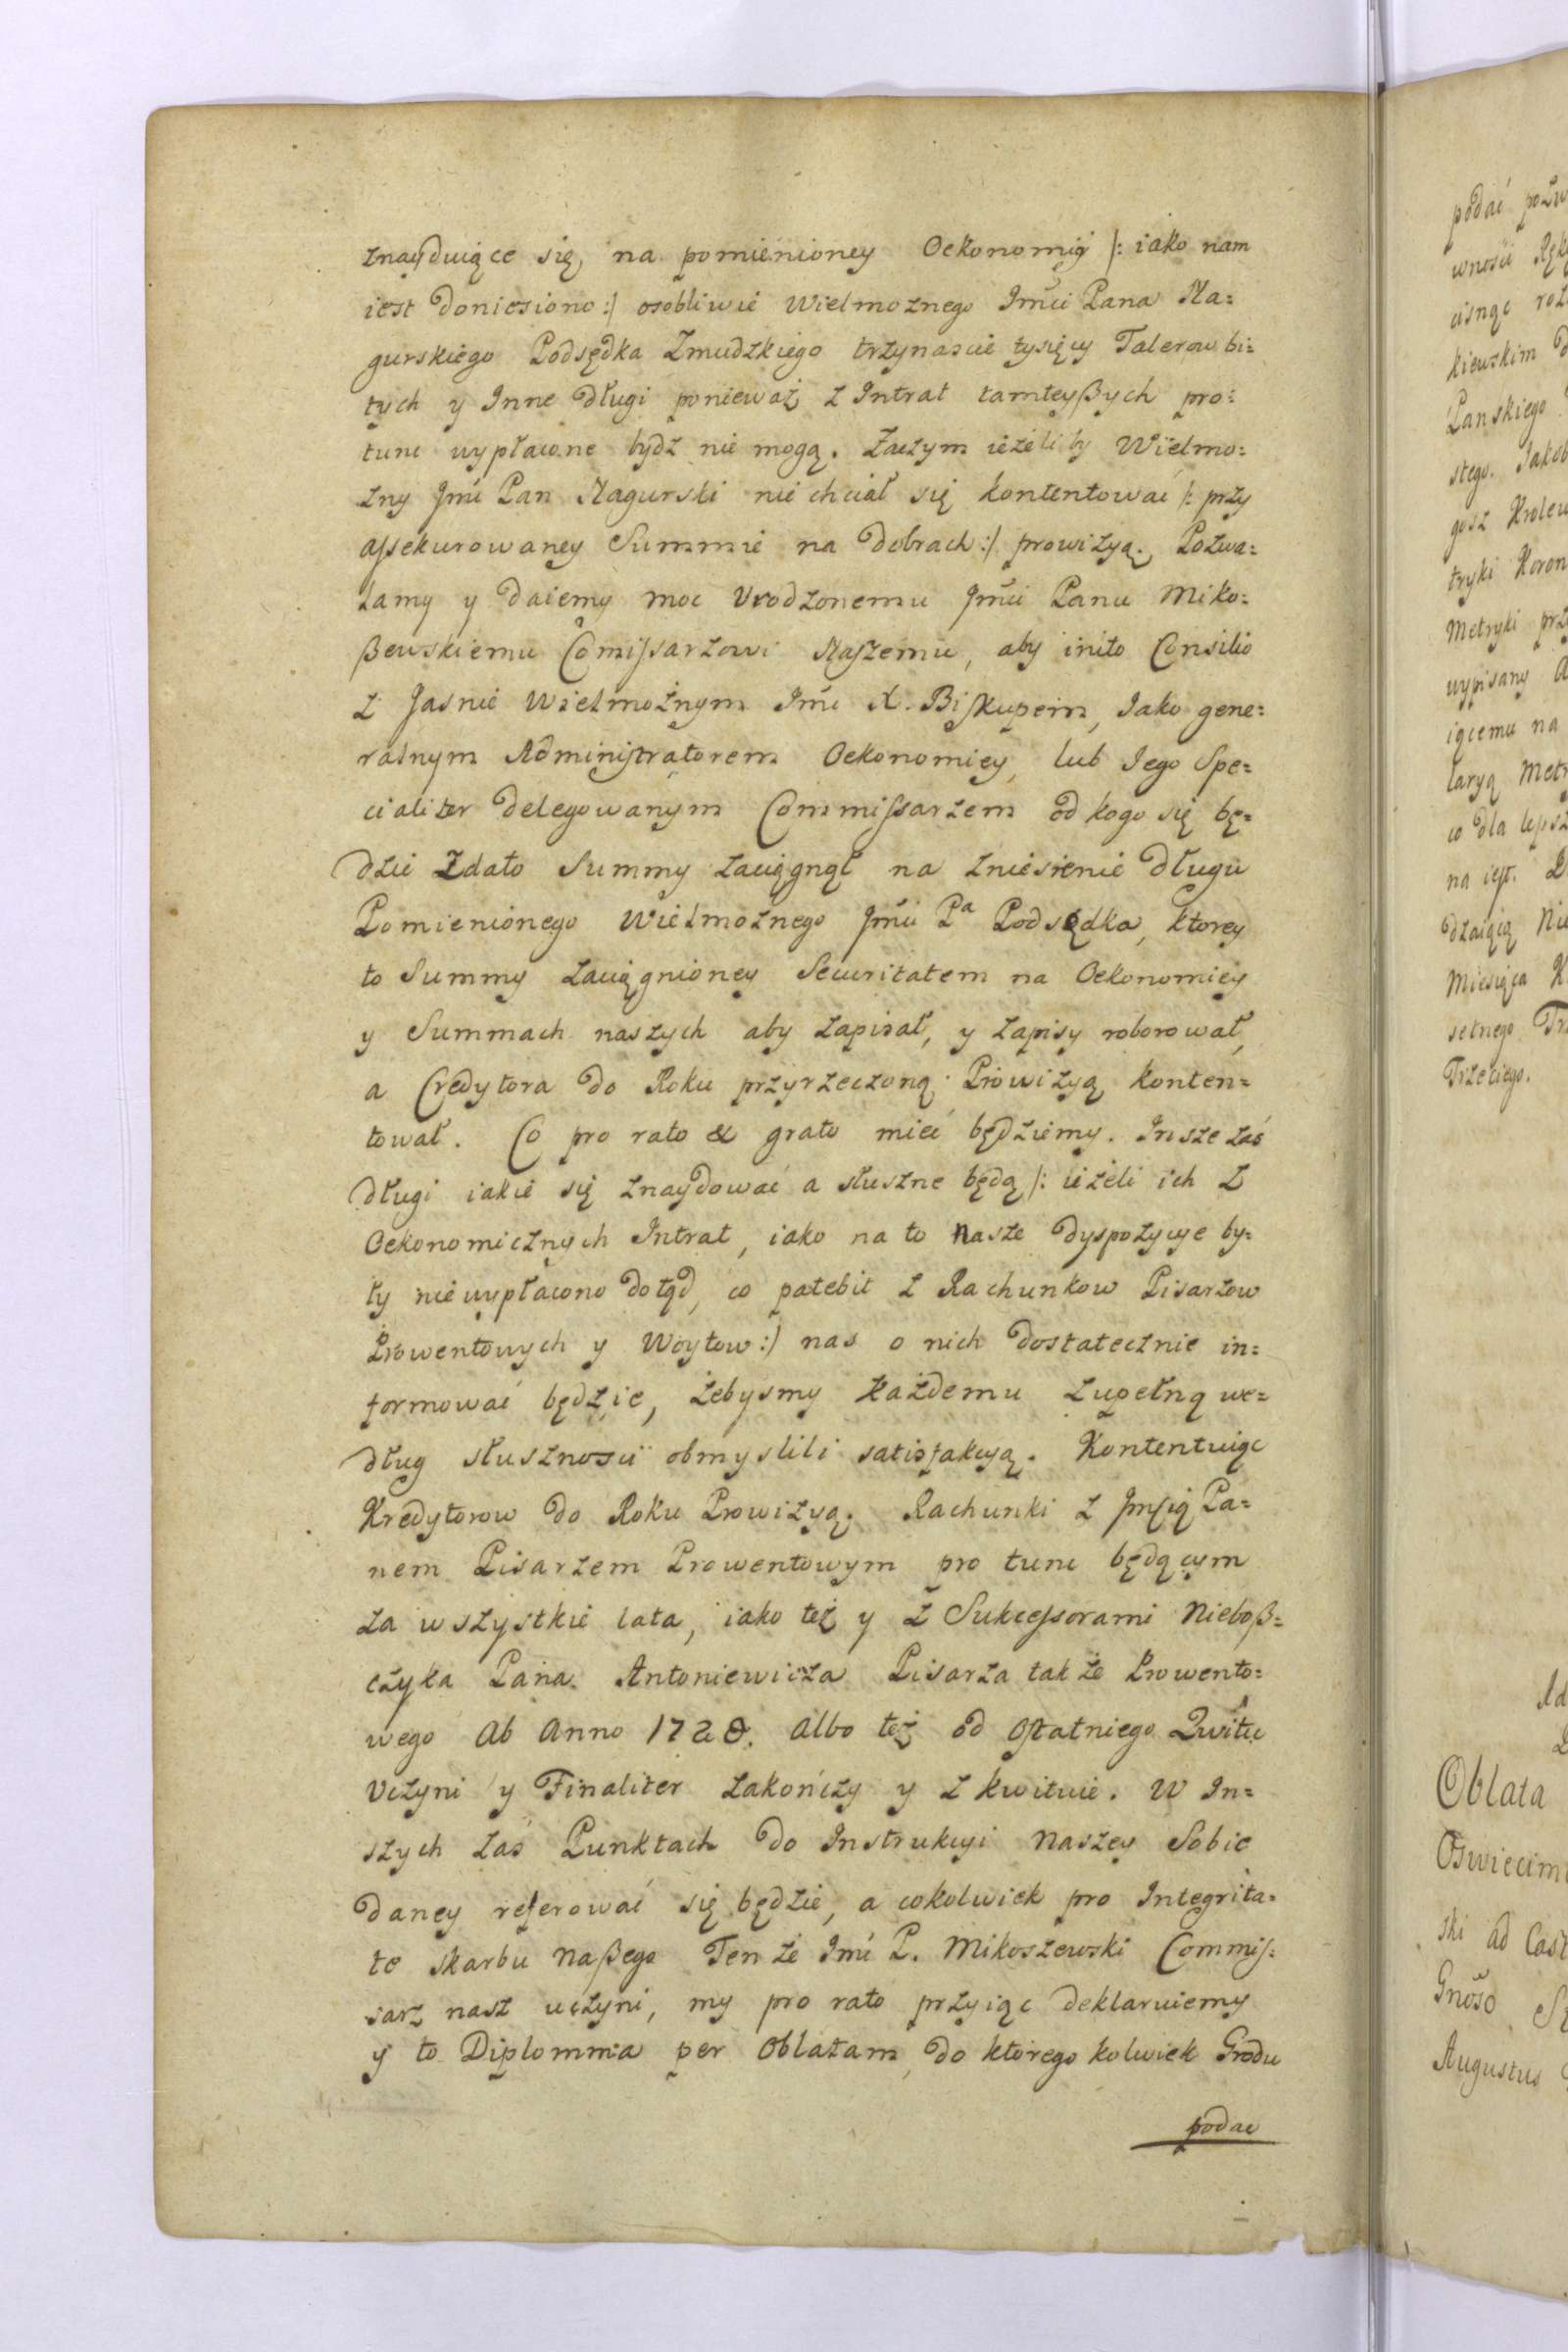 znayduiące się, na pomienioney Oekonomią /: iako nam
iest doniesiono :/ osobliwie Wielmoznego Jmći Pana Na=
gurskiego Podsędka Zmudzkiego trzynascie tysięcy Talerow bi=
tych y Inne długi ponieważ z Intrat tamteyßych pro=
tunc wypłacone bydz nie mogą. Zaczym ieżeli by Wielmo=
zny Jmć Pan Nagurski nie chciał się kontentować /: przy
assekurowaney Summie na dobrach :/ prowizyą. Pozwa=
lamy y daiemy moc Vrodzonemu Jmći Panu Miko=
ßewskiemu Comissarzowi Naszemu, aby inito Consilio
z Jasnie Wielmożnym Jmć X. Biskupem, Jako gene=
ralnym Administratorem Oekonomiey, lub Jego Spe=
cialiter delegowanym Commissarzem od kogo się bę=
dzie Zdało Summy zaciągnął na zniesienie długu
Pomienionego Wielmożnego Jmći Pª Podsędka, ktorey
to Summy zaciągnioney Securitatem na Oekonomiey
y Summach naszych aby zapisał, y zapisy roborował,
a Credytora do Roku przyrzeczoną Prowizyą konten=
tował. Co pro rato & grato mieć będziemy. Insze zaś
długi iakie się znaydować a słuszne będą /: ieżeli ich z
Oekonomicznych Intrat, iako na to Nasze dyspozycye by=
ły nie wypłacono dotąd, co patebit z Rachunkow Pisarzow
Prowentowych y Woytow :/ nas o nich dostatecznie in=
formować będzie, żebysmy każdemu zupełną we=
dług słusznosći obmyslili satisfakcyą. Kontentuiąc
Kredytorow do Roku Prowizyą. Rachunki z Jmścią Pa=
nem Pisarzem Prowentowym pro tunc będącym
za wszystkie lata, iako też y z Sukcessorami Nieboß=
czyka Pana Antoniewicza Pisarza także Prowento=
wego Ab Anno 1728. Albo też od Ostatniego Qwitu
Vczyni y Finaliter zakończy y z kwituie. W In=
szych zaś Punktach do Instrukcyi Naszey Sobie
daney referować się będzie, a cokolwiek pro Integrita=
te skarbu Naßego Tenże Jmć P. Mikoszewski Commis=
sarz nasz uczyni, my pro rato przyiąc deklaruiemy
y to Diplomma per Oblatam, do ktorego kolwiek Grodu
podac
podać
wnosci
cisnąc
kiewskim
Panskiego
stego.
tryki Koron
Metryki
wypisany
iącemu na
co dla
na iest.
Miesiąca
setnego
Trzeciego.
Oblata
Oswiecim
ski ad Cast
Augustus